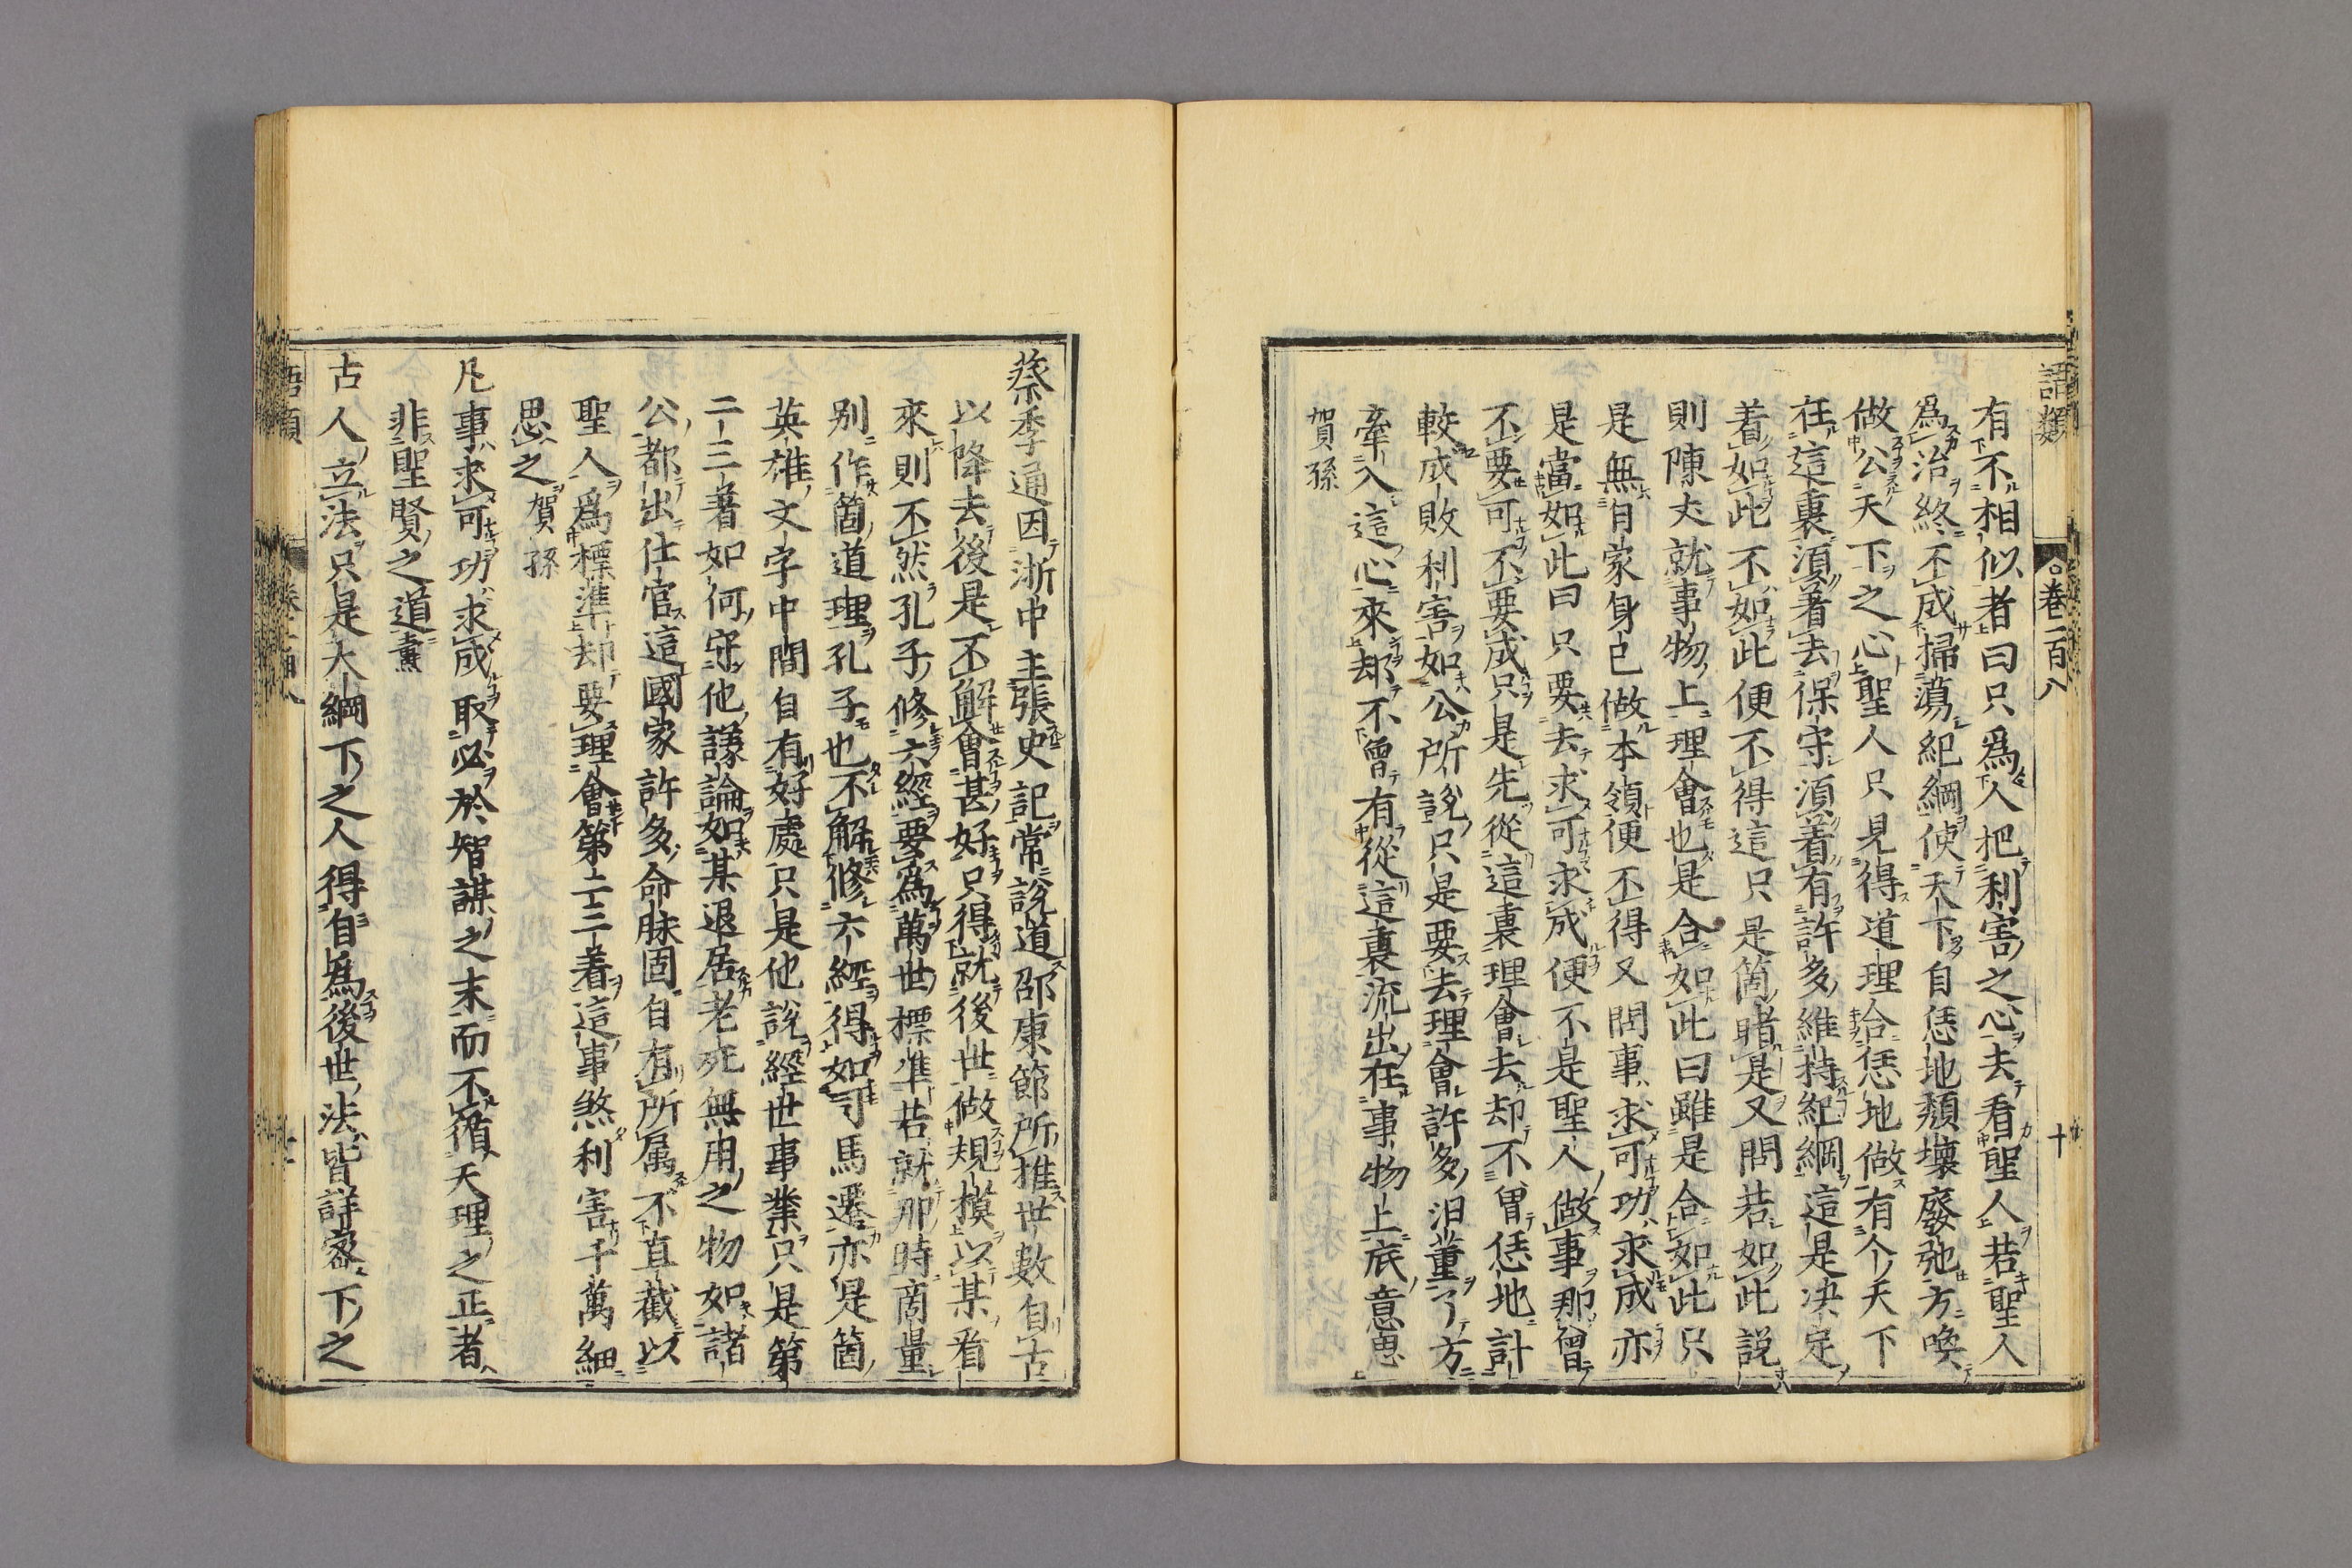 語類
卷一百八
十
有不相似者曰只爲人把利害之心去看聖人若聖人
爲治終不成掃蕩紀綱使天下自恁地頽壞廢弛方喚
做公天下之心聖人只見得道理合恁地做有个天下
在這裏須著去保守須着有許多維持紀綱這是决定
着如此不如此便不得這只是箇睹是又問若如此説
則陳丈就事物上理會也是合如此曰雖是合如此只
是無自家身已做本領便不得又問事求可功求成亦
是當如此曰只要去求可求成便不是聖人做事那曾
不要可不要成只是先從這裏理會去却不曾恁地計
較成敗利害如公所說只是要去理會許多汨董了方
牽入這心來却不曾有從這裏流出在事物上底意思
賀孫
蔡季通因浙中主張史記常說道邵康節所推世數自古
以降去後是不解會甚好只得就後世做規模以某看
來則不然孔子修六經要爲萬世標準若就那時商量
别作箇道理孔子也不解修六經得如司馬遷亦是箇
英雄文字中間自有好處只是他說經世事業只是第
二三著如何守他議論如某退居老死無用之物如諸
公都出仕官這國家許多命脉固自有所属不直截以
聖人爲標準却要理會第二三着這事煞利害千萬細
思之賀孫
凡事求可功求成取必於智謀之末而不循天理之正者
非聖賢之道燾
古人立法只是大綱下之人得自爲後世法皆詳密下之
語類